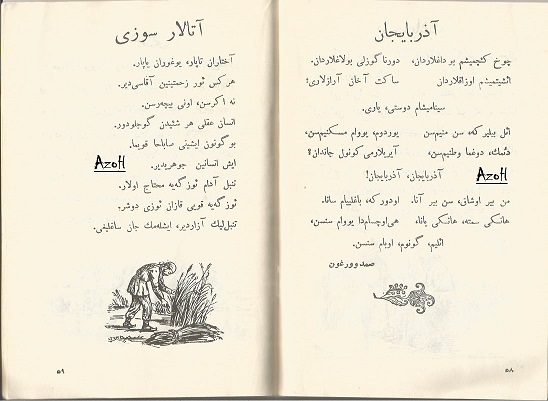 آذربایجان
چوخ کئچمیشم بو داغلاردان، دورنا گوزلی بولاغلاردان.
ائشیتمیشم اوزاقلاردان ساکت آخان آرازلاری؛
سینامیشام دوستی، یاری.
ائل بیلیر که، سن منیم‌سن، یوردوم، یووام، مسکنیم‌سن،
دئمك، دوغما وطنیم‌سن، آیریلارمی کونول جاندان؟
آذربایجان، آذربایجان!
AzoH
من بیر اوشاق، سن بیر آنا. اودور که، باغلییام سانا.
هانسکی سمته، هانسکی یانا، هی‌اوچسام‌دا یووام سنسن،
ائلیم، گونوم، اوبام سنسن.
صمد وورغون
۵۸
آتالار سوزی
آختاران تاپار، یوغوران یاپار.
هر کس ئوز زحمتینین آقاسی‌دیر.
نه اکرسن، اونی بیچه‌رسن.
انسانی عقلی هر شئیدن گوجلودور.
بو گونون ایشینی صاباحا قویما.
ایش انسانین جوهریدیر.
AzoH
تنبل آدام ئوزگه‌یه محتاج اولار.
ئوزگه‌یه قویی قازان ئوزی دوشر.
تنبل‌لیك آزاردیر، ایشله‌مك جان ساغلیغی.
۵۹